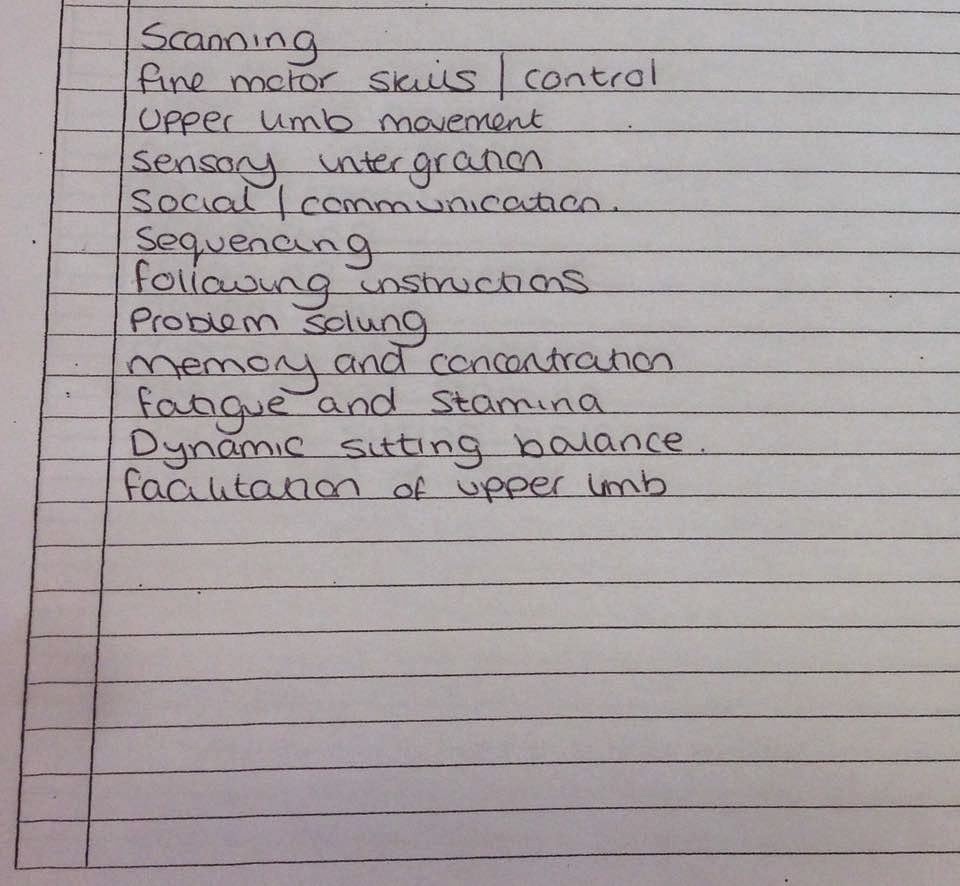 Scanning
fine motor skills | control
Upper limb movement
Sensory intergration
Social | communication.
Sequencing
following instructions
Problem solving
Memory and concentration
fatigue and stamina
Dynamic sitting balance.
facilitation of upper limb